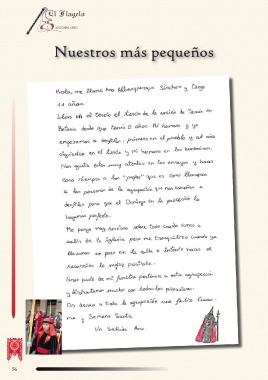 El Flagelo
25 ANIVERSARIO
Nuestros más pequeños
Hola, me llamo Ana Alburquerque Sánchez y tengo
11 años.
Llevo en el Tercio el Tercio de la oración de Jesús en
desde que tenía 5 años. Mi hermana y yo
empezamos a desfilar, primero en el pueblo y al año
siguiente en el tercio y mi hermana en los
Nos gusta estar muy atentos en los ensayos y hacer
caso siempre a los "pepes" que es como llamamos
a las personas de la agrupación que nos enseñan a
desfilar para que el Domingo en la procesión lo
hagamos perfecto.
Me pongo muy nerviosa sobre todo cuando vamos a
salir de la Iglesia pero me tranquilizo cuando ya
llevamos un poco en la calle e intento hacer el
recorrido lo mejor posible.
Gran parte de mi familia pertenece a esta agrupación
y disfrutamos mucho con todas las procesiones.
Os deseo a toda la agrupación una feliz Cuares-
ma y Semana Santa
Un Saludo Ana.
56